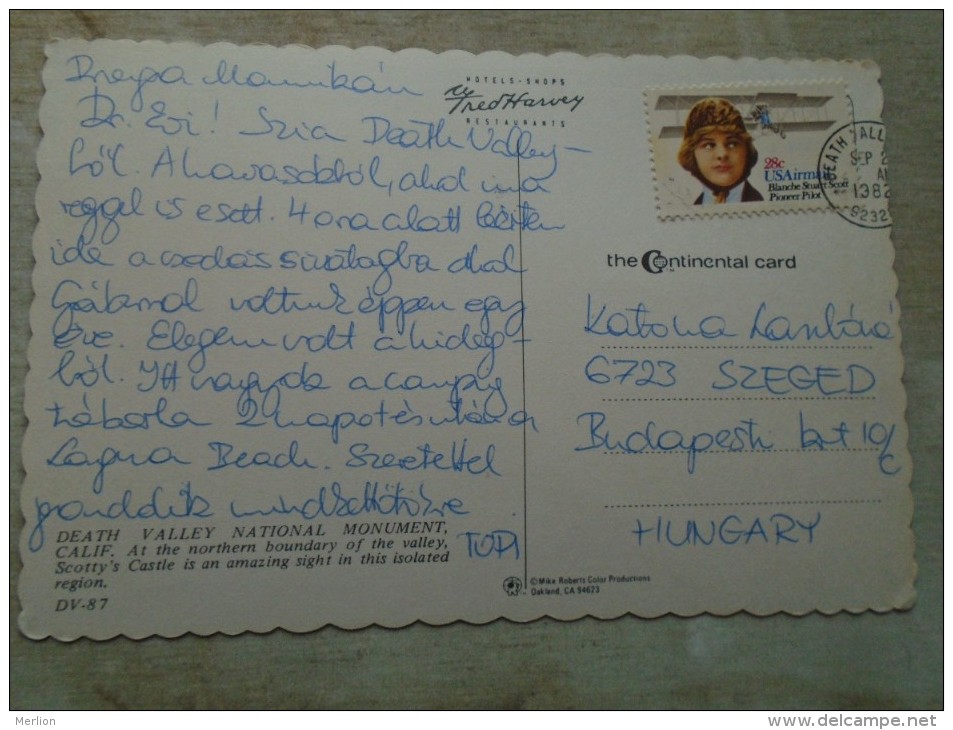 Drága Mamikám
Dr. Évi! Szia Death Valley-
ből. A havasokból, ahol ma
reggel is esett. 4 óra alatt leértem
ide a csodás sivatagba ahol
Gáborral voltunk éppen egy
éve. Elegem volt a hideg-
ből. Itt vagyok a camping
táborba 2 napot és utána
Laguna Beach. Szeretettel
gondolok mindkettőtökre
TOPI
DEATH VALLEY NATIONAL MONUMENT,
CALIF. At the northern boundary of the valley,
Scotty's Castle is an amazing sight in this isolated
region.
DV-87
HOTELS - SHOPS
Fred Harvey
RESTAURANTS
28c
USAirmail
Blanche Stuart Scott
Pioneer Pilot
DEATH VALL
SEP 2
AM
1982
9232
the Continental card
Katona Lászlóné
6723 SZEGED
Budapesti krt 10/c
HUNGARY
©Mike Roberts Color Productions
Oakland, CA 94623
Merlion
www.delcampe.net